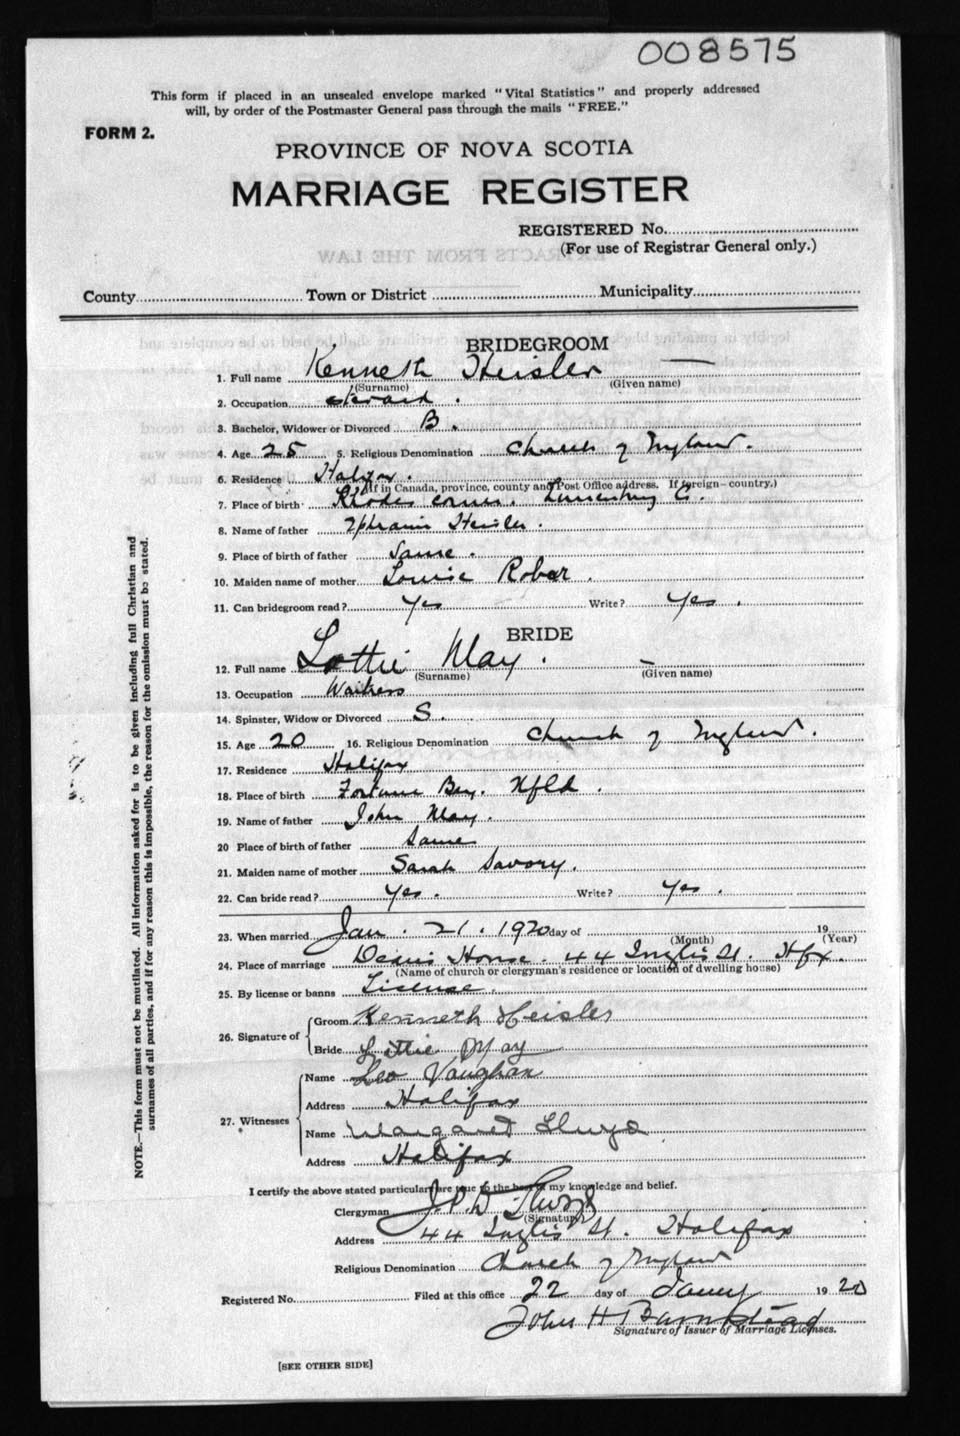 008575
This form if placed in an unsealed envelope marked "Vital Statistics" and properly addressed
will, by order of the Postmaster General pass through the mails "FREE."
FORM 2.
PROVINCE OF NOVA SCOTIA
MARRIAGE REGISTER
REGISTERED No.
(For use of Registrar General only.)
EXTRACTS FROM THE LAW
County Town or District Municipality
BRIDEGROOM
1. Full name Kenneth Heisler
(Surname) (Given name)
2. Occupation
3. Bachelor, Widower or Divorced B.
4. Age 25 5. Religious Denomination Church of England.
6. Residence Halifax.
(If in Canada, province, county and Post Office address. If foreign - country.)
7. Place of birth Rhodes corner. Lunenburg Co.
8. Name of father Ephraim Heisler.
9. Place of birth of father Same.
10. Maiden name of mother Louise Robar.
11. Can bridegroom read? Yes Write? Yes.
BRIDE
12. Full name Lottie May.
(Surname) (Given name)
13. Occupation Waitress
14. Spinster, Widow or Divorced S.
15. Age 20 16. Religious Denomination Church of England.
17. Residence Halifax
18. Place of birth Fortune Bay. Nfld.
19. Name of father John May.
20 Place of birth of father Same
21. Maiden name of mother Sarah Savory.
22. Can bride read? Yes. Write? Yes.
23. When married Jan. 21. 1920 day of 19
(Month) (Year)
24. Place of marriage House. 44 Inglis St. Hfx.
(Name of church or clergyman's residence or location of dwelling house)
25. By license or banns License.
26. Signature of Groom Kenneth Heisler
Bride Lottie May
27. Witnesses Name Leo Vaughan
Address Halifax
Name Margaret
Address Halifax
I certify the above stated particulars are true to the best of my knowledge and belief.
Clergyman
(Signature)
Address 44 Inglis St. Halifax
Religious Denomination Church of England
Registered No. Filed at this office 22 day of 1920
John H Barnstead
Signature of Issuer of Marriage Licenses.
[SEE OTHER SIDE]
NOTE.—This form must not be mutilated. All information asked for is to be given including full Christian and
surnames of all parties, and if for any reason this is impossible, the reason for the omission must be stated.